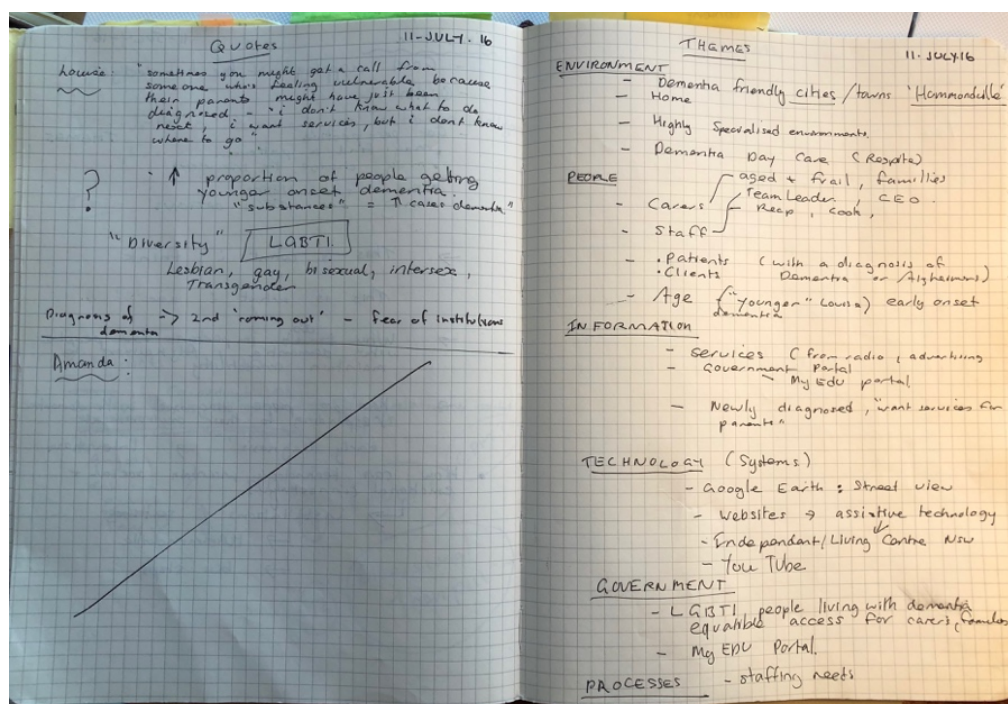 Quotes
11-JULY.16
Louise: "sometimes you might get a call from
someone who's feeling vulnerable, because
their parents might have just been
diagnosed - "i don't know what to do
next, i want services, but i don't know
where to go".
? ↑ proportion of people getting
younger onset dementia.
"substances" = ↑ cases dementia"
"Diversity" LGBTI
Lesbian, gay, bisexual, intersex,
Transgender
Diagnosis of → 2nd 'coming out' - fear of institutions
dementia
Amanda:
THEMES
11.JULY.16
ENVIRONMENT
- Dementia friendly cities/towns 'Hammondville'
- Home
- Highly Specialised environments.
- Dementia Day Care (Respite)
PEOPLE
aged + frail, families
- Carers
Team Leader, CEO.
Recp, Cook,
- Staff
- • Patients (with a diagnosis of
• Clients Dementia or Alzheimers)
- Age ("younger" Louisa) early onset
dementia
INFORMATION
- services (from radio, advertising
- Government Portal
- My Edu portal
- Newly diagnosed, "want services for
parents"
TECHNOLOGY (Systems)
- Google Earth : Street view
- websites → assistive technology
- Independant/Living Centre NSW
- You Tube
GOVERNMENT
- LGBTI, people living with dementia
equatible access for carers, families
- My EDU Portal.
PROCESSES - staffing needs